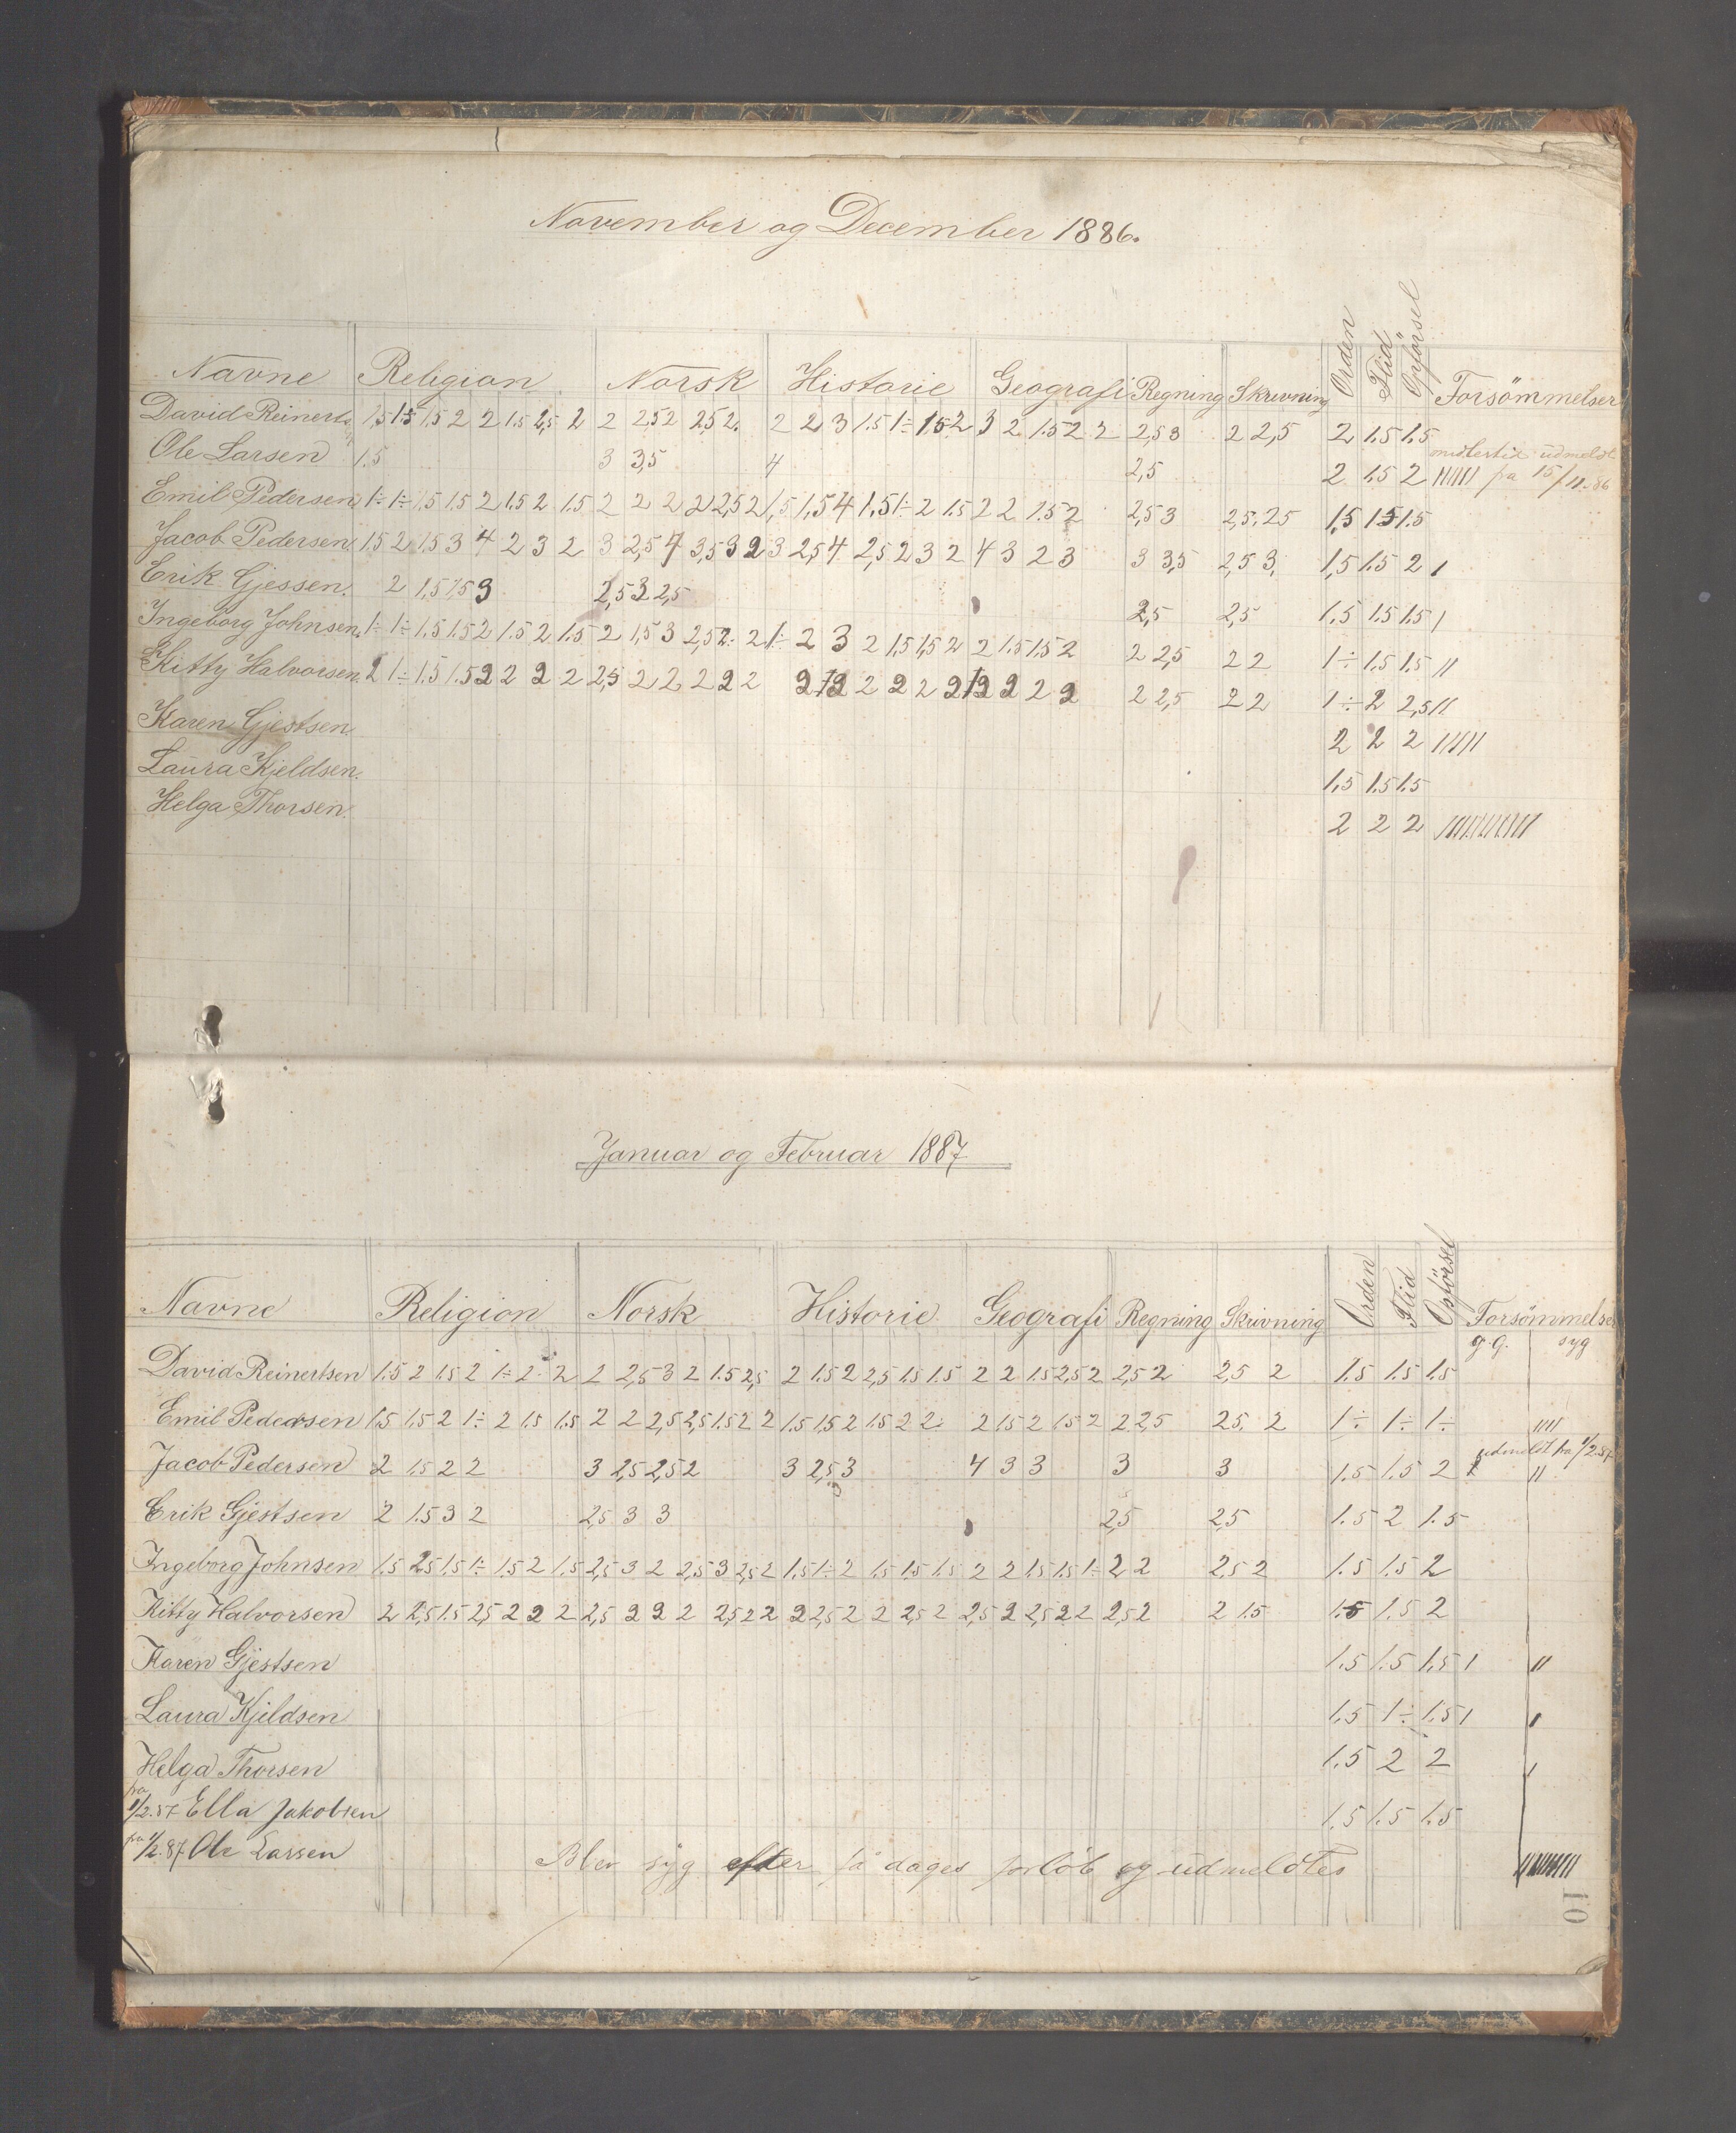 November og December 1886.
Navne Religion Norsk Historie Geografi Regning Skrivning Orden Flid Opförsel Forsömmelser
David Reinerts. 1,5 1,5 1,5 2 2 1.5 2,5 2 2 2,5 2 2,5 2. 2 2 3 1.5 1÷ 1,5 2 3 2 1.5 2 2 2,5 3 2 2,5 2 1.5 1.5
midlertid. udmeldt
Ole Larsen 1.5 3 3,5 4 2,5 2 1,5 2 ///// fra 15/11-86
Emil Pedersen 1÷ 1÷ 1,5 1.5 2 1,5 2 1.5 2 2 2 2 2,5 2 1,5 1,5 4 1,5 1÷ 2 1.5 2 2 1.5 2 2,5 3 2,5. 2,5 1,5 1,5 1.5
Jacob Pedersen 1.5 2 1,5 3 4 2 3 2 3 2,5 4 3,5 3 2 3 2,5 4 2,5 2 3 2 4 3 2 3 3 3,5 2,5 3. 1,5 1.5 2 /
Erik Gjessen. 2 1,5 1,5 3 2,5 3 2,5 2,5 2,5 1.5 1.5 1.5 /
Ingeborg Johnsen. 1÷ 1÷ 1,5 1.5 2 1.5 2 1.5 2 1,5 3 2,5 2. 2 1÷ 2 3 2 1,5 1,5 2 2 1.5 1.5 2 2 2,5 2 2 1÷ 1,5 1.5 //
Kitty Halvorsen. 2 1÷ 1.5 1.5 2 2 2 2 2,5 2 2 2 2 2 2 2 2 2 2 2 2 2 2 2 2,5 2 2 1÷ 2 2,5 //
Karen Gjestsen 2 2 2 /////
Laura Kjeldsen. 1,5 1.5 1.5
Helga Thorsen. 2 2 2 //////////
Januar og Februar 1887
Navne Religion Norsk Historie Geografi Regning Skrivning Orden Flid Opförsel Forsömmelser
g.G. syg
David Reinertsen 1.5 2 1.5 2 1÷ 2 2 2 2,5 3 2 1.5 2,5 2 1.5 2 2,5 1.5 1.5 2 2 1.5 2,5 2 2,5 2 2,5 2 1.5 1.5 1.5
Emil Pedersen 1,5 1.5 2 1÷ 2 1.5 1,5 2 2 2,5 2,5 1.5 2 2 1.5 1,5 2 1.5 2 2 2 1.5 2 1.5 2 2 2,5 2,5. 2 1÷ 1÷ 1÷ ////
udmeldt fra 1/2.87
Jacob Pedersen 2 1.5 2 2 3 2,5 2,5 2 3 2,5 3 4 3 3 3 3 1.5 1.5 2 //
Erik Gjestsen 2 1.5 3 2 2,5 3 3 2,5 2,5 1.5 2 1.5
Ingeborg Johnsen 1.5 2,5 1.5 1÷ 1.5 2 1.5 2,5 3 2 2,5 3 2,5 2 1.5 1÷ 2 1.5 1.5 1.5 2 2 1.5 1.5 1÷ 2 2 2,5 2 1.5 1.5 2
Kitty Halvorsen 2 2,5 1.5 2,5 2 2 2 2,5 2 2 2 2,5 2 2 2 2,5 2 2 2,5 2 2,5 2 2,5 2 2 2,5 2 2 1.5 1.5 1.5 2
Karen Gjestsen 1.5 1.5 1.5 / //
Laura Kjeldsen 1.5 1÷ 1.5 / /
Helga Thorsen 1.5 2 2 /
fra
1/2.87 Ella Jakobsen 1.5 1.5 1.5
fra 1/2.87 Ole Larsen Blev syg efter få dages forlöb og udmeldtes
10